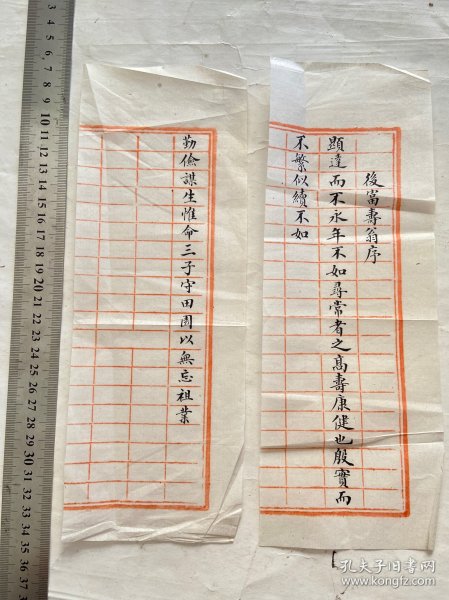 後富壽翁序
顯達而不永年不如尋常者之髙壽康健也殷實而
不繁似續不如
勤儉謀生惟命三子守田園以無忘祖業
3 4 5 6 7 8 9 10 11 12 13 14 15 16 17 18 19 20 21 22 23 24 25 26 27 28 29 30 31 32 33 34 35 36 37
孔夫子旧书网
www.kongfz.com